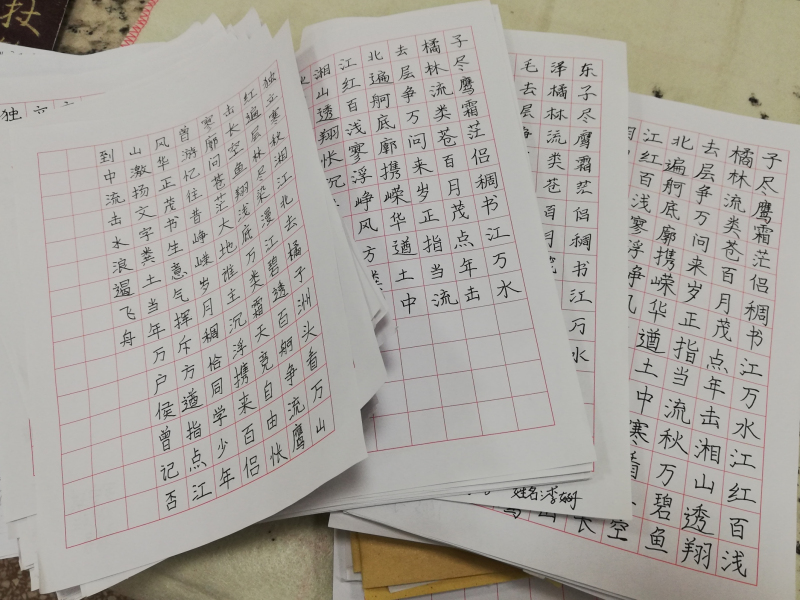 独立寒秋湘江北去橘子洲头看万山
红遍层林尽染漫江碧透百舸争流鹰
击长空鱼翔浅底万类霜天竞自由怅
寥廓问苍茫大地谁主沉浮携来百侣
曾游忆往昔峥嵘岁月稠恰同学少年
风华正茂书生意气挥斥方遒指点江
山激扬文字粪土当年万户侯曾记否
到中流击水浪遏飞舟
子尽鹰霜茫侣稠书江万水
橘林流类苍百月茂点年击
去层争万问来岁正指当流
北遍舸底廓携嵘华遒土中
江红百浅寥浮峥风方粪
湘山透翔怅沉
东子尽鹰霜茫侣稠书江万水
泽橘林流类苍百月
毛去层争
姓名:李
子尽鹰霜茫侣稠书江万水江红百浅
橘林流类苍百月茂点年击湘山透翔
去层争万问来岁正指当流秋万碧鱼
北遍舸底廓携嵘华遒土中寒看空
江红百浅寥浮争风
长
独立